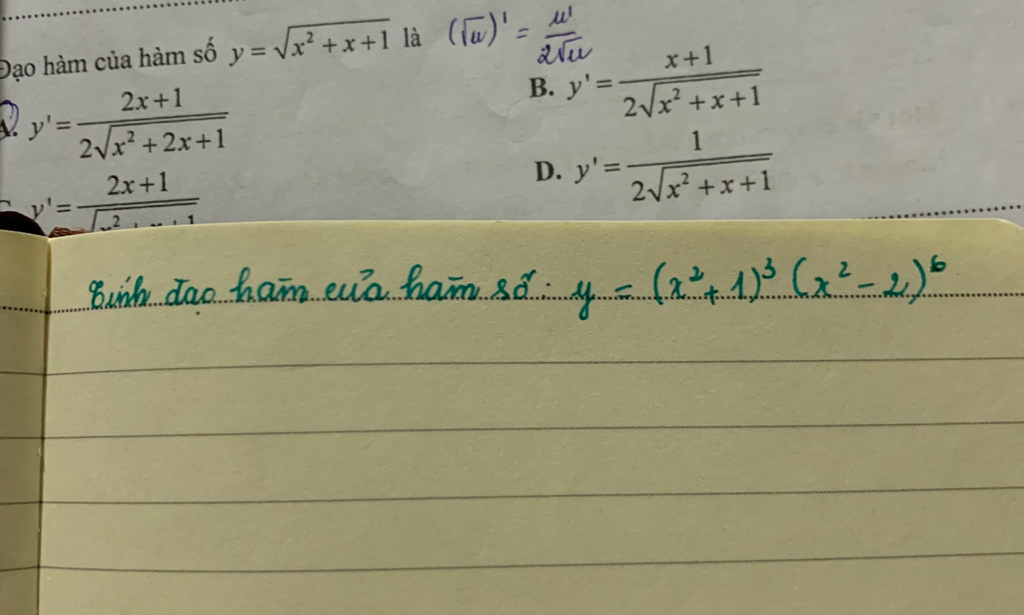 Đạo hàm của hàm số y = √(x² + x + 1) là (√u)' = u'/2√u
A. y' = (2x+1)/(2√(x² + 2x + 1))
B. y' = (x+1)/(2√(x² + x + 1))
C. y' = (2x+1)/√(x² + x + 1)
D. y' = 1/(2√(x² + x + 1))
Tính đạo hàm của hàm số: y = (x² + 1)³ (x² - 2)⁶